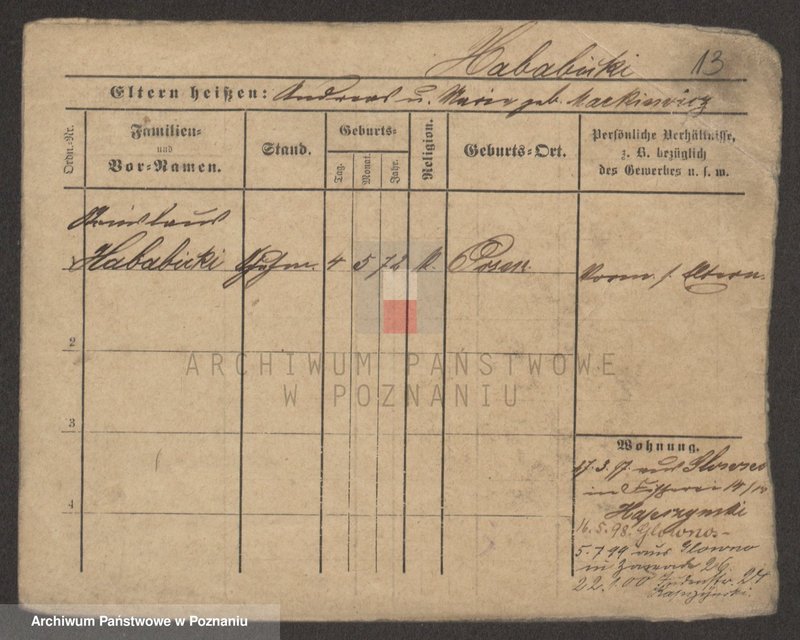 Hababicki 13
Eltern heißen: Andreas u. Marie geb. Mackiewicz
Ordn.-Nr.
Familien- und Vor-Namen.
Stand.
Geburts-
Tag.
Monat.
Jahr.
Religion.
Geburts-Ort.
Persönliche Verhältnisse, z. B. bezüglich des Gewerbes u. s. w.
Stanislaus
Hababicki 4 5 72 k. Posen. Vorm. s. Eltern.
2
3
4
Wohnung.
17.3.97. aus Glowno
in Fischerei 14/10
Hasczynski
16.5.98. Glowno-
5.7.99 aus Glowno
in Zawade 26.
22. 00 24
ARCHIWUM PAŃSTWOWE
W POZNANIU
Archiwum Państwowe w Poznaniu